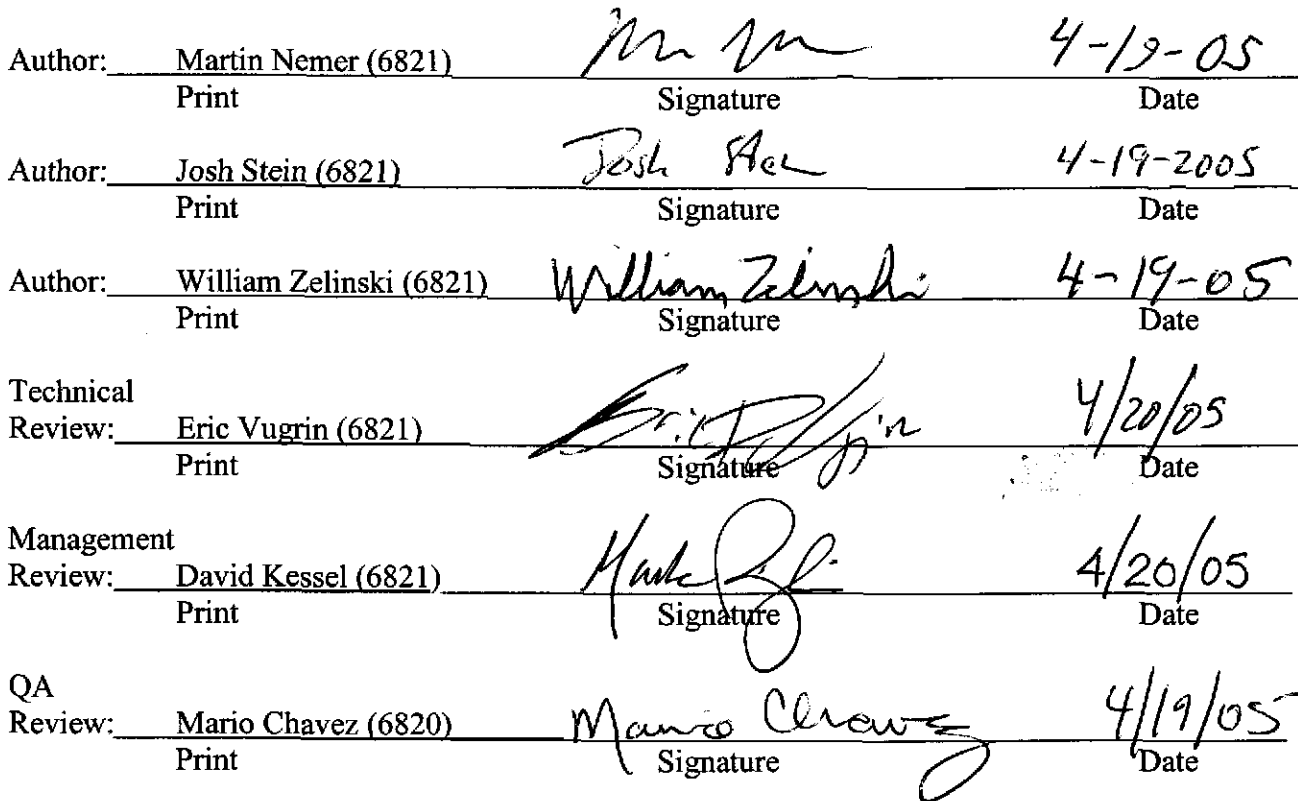 Author: Martin Nemer (6821) 4-19-05
Print Signature Date
Author: Josh Stein (6821) Josh Stein 4-19-2005
Print Signature Date
Author: William Zelinski (6821) William Zelinski 4-19-05
Print Signature Date
Technical
Review: Eric Vugrin (6821) 4/20/05
Print Signature Date
Management
Review: David Kessel (6821) 4/20/05
Print Signature Date
QA
Review: Mario Chavez (6820) Mario Chavez 4/19/05
Print Signature Date